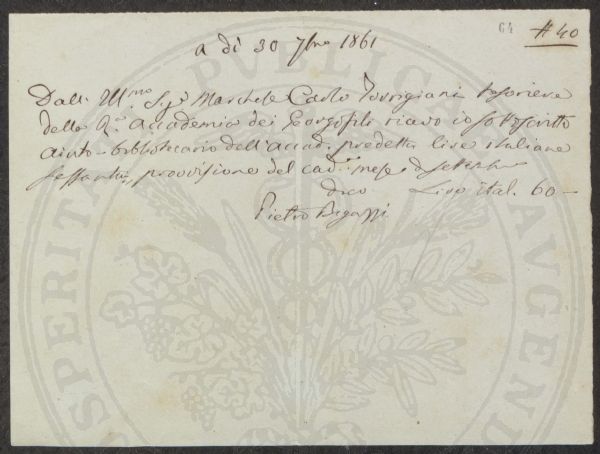 64 # 40
a dì 30 7bre 1861
Dall' Ill.mo Sig.r Marchese Carlo Torrigiani tesoriere
della R.a Accademia dei Georgofili ricevo io sottoscritto
aiuto-bibliotecario dell'accad. predetta lire italiane
sessanta, provvisione del cad.te mese di settembre
dico Lire ital. 60 —
Pietro Bigazzi
PROSPERITATI PUBLICAE AUGENDAE